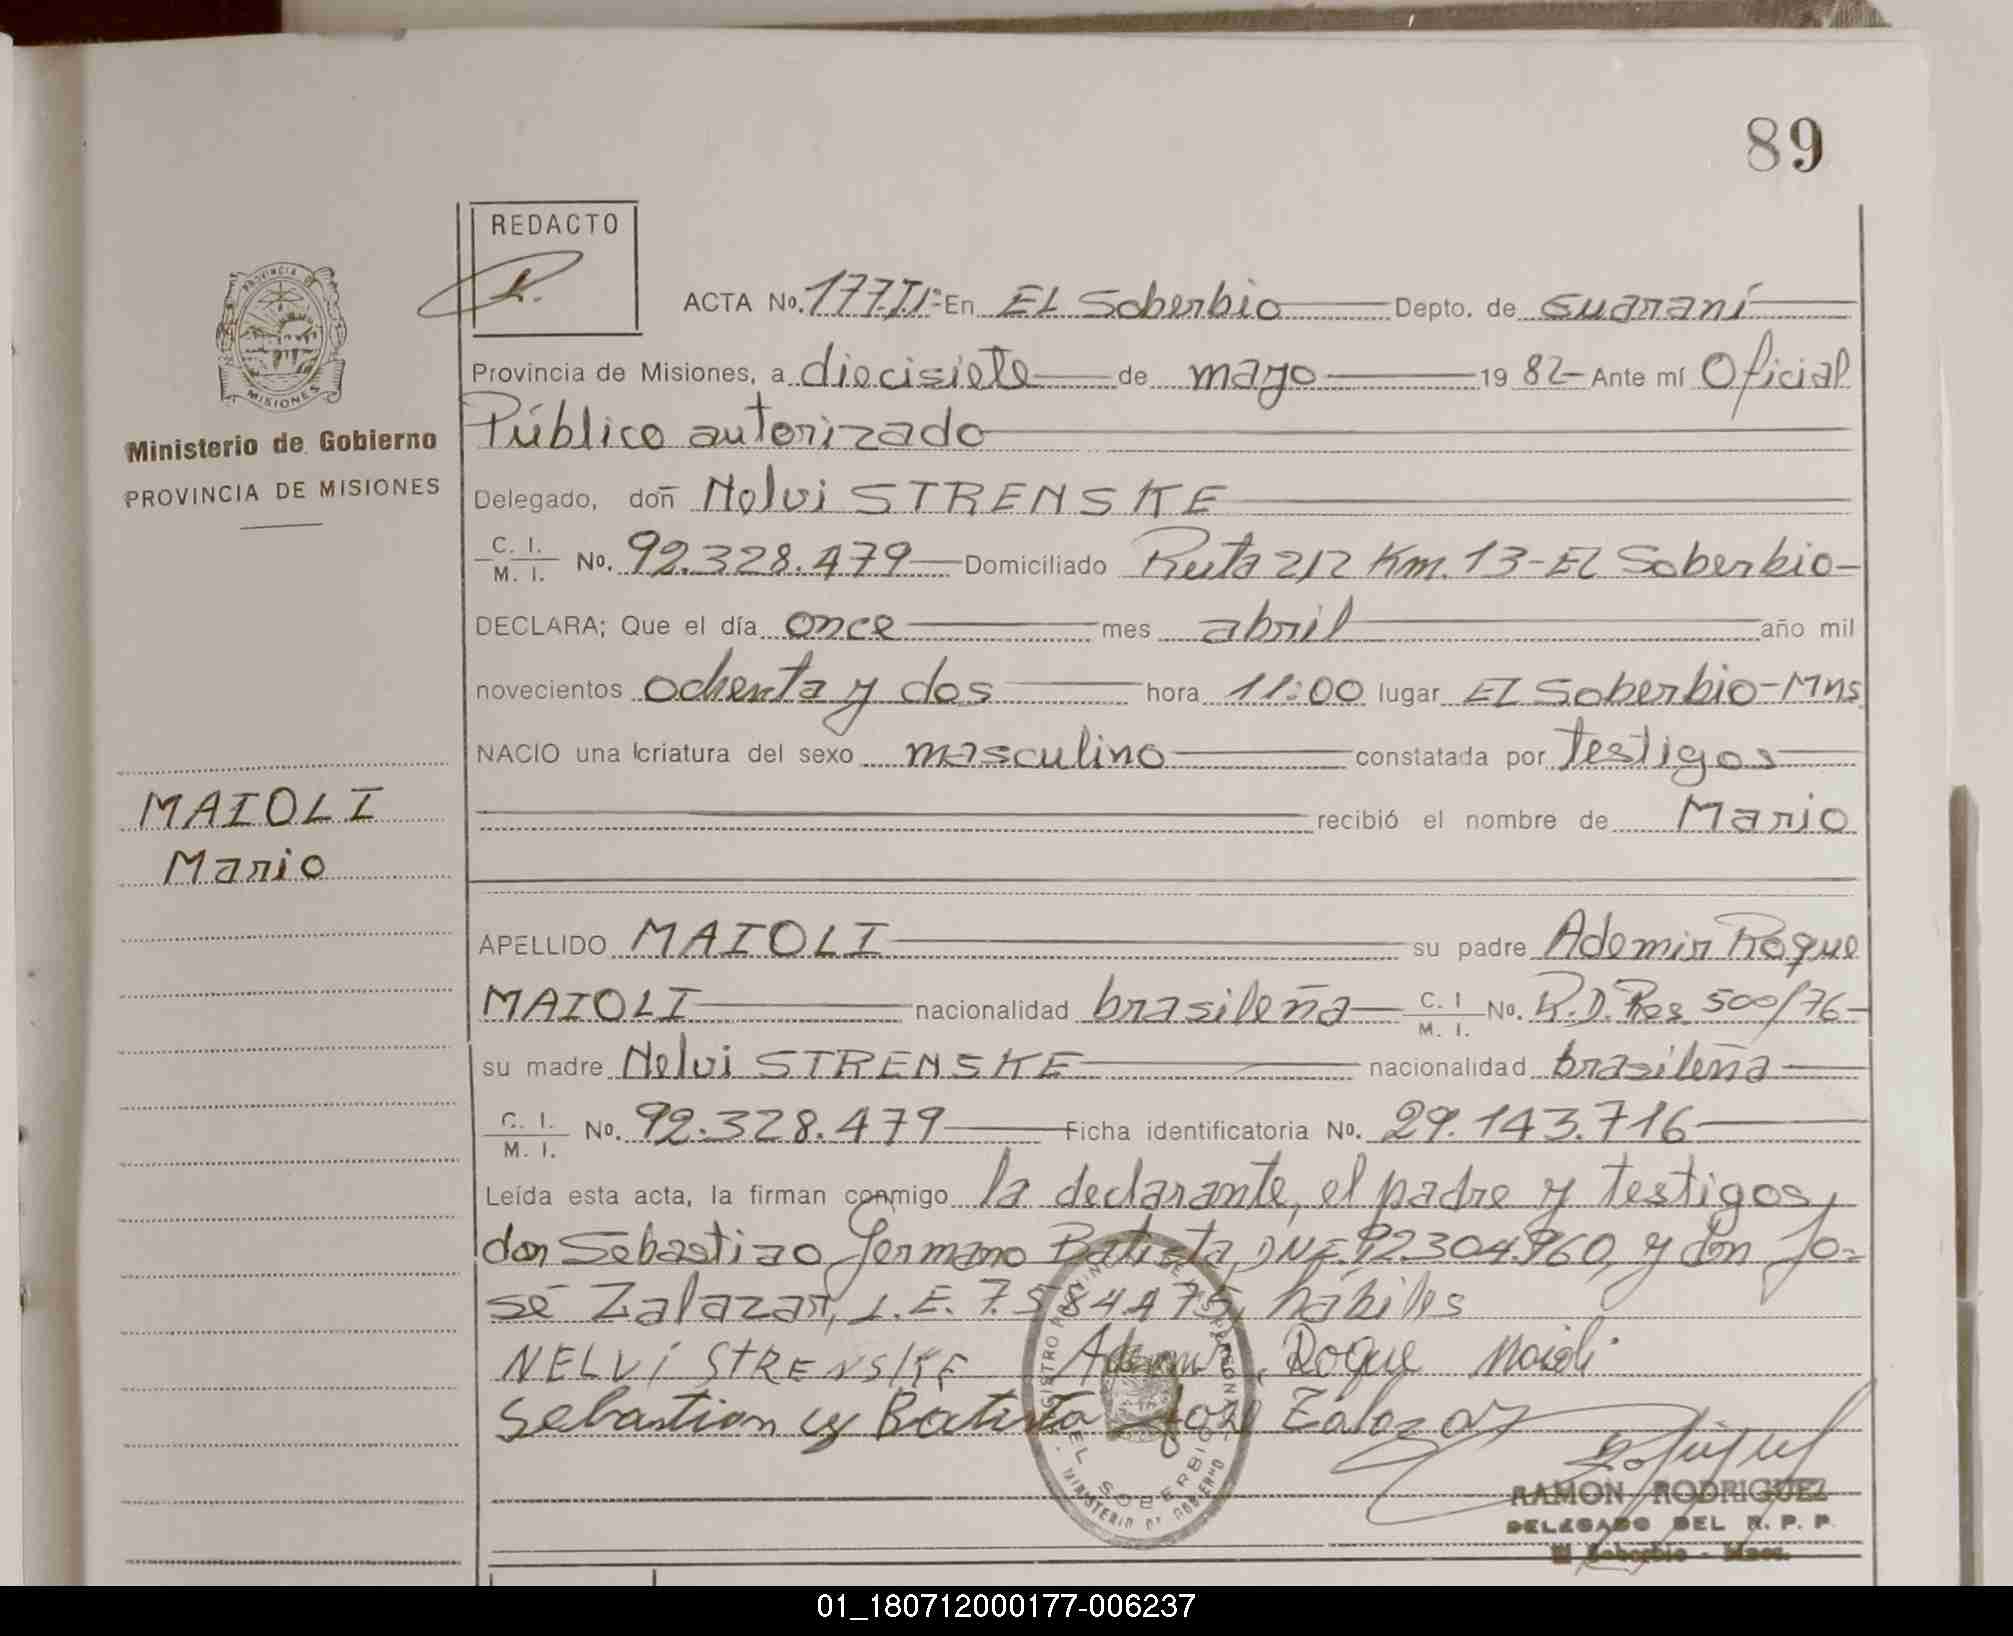 89
REDACTO
PROVINCIA DE
MISIONES
Ministerio de Gobierno
PROVINCIA DE MISIONES
MAIOLI
Mario
ACTA No. 177.II:- En EL Soberbio Depto. de Guaraní
Provincia de Misiones, a diecisiete de mayo 19 82- Ante mí Oficial
Público autorizado
Delegado, don Nelvi STRENSKE
C. I. M. I. No. 92.328.479 Domiciliado Ruta 212 Km. 13-EL Soberbio-
DECLARA; Que el día once mes abril año mil
novecientos ochenta y dos hora 11:00 lugar EL Soberbio-Mns
NACIO una criatura del sexo masculino constatada por Testigos
recibió el nombre de Mario
APELLIDO MAIOLI su padre Ademir Roque
MAIOLI nacionalidad brasileña C. I M. I. No. R.D.Res. 500/76-
su madre Nelvi STRENSKE nacionalidad brasileña
C. I. M. I. No. 92.328.479 Ficha identificatoria No. 29.143.716
Leída esta acta, la firman conmigo la declarante, el padre y testigos,
don Sebastiao Germano Batista, DNE. 92.304.960, y don Jo-
sé Zalazar, L.E. 7.584.475, hábiles
NELVI STRENSKE Ademir Roque Maioli
Sebastian g Batista Jose Zalazar
REGISTRO PROVINCIAL DE LAS PERSONAS
EL SOBERBIO
MINISTERIO DE GOBIERNO
RAMON RODRIGUEZ
DELEGADO DEL R. P. P.
El Soberbio - Mnes.
01_180712000177-006237